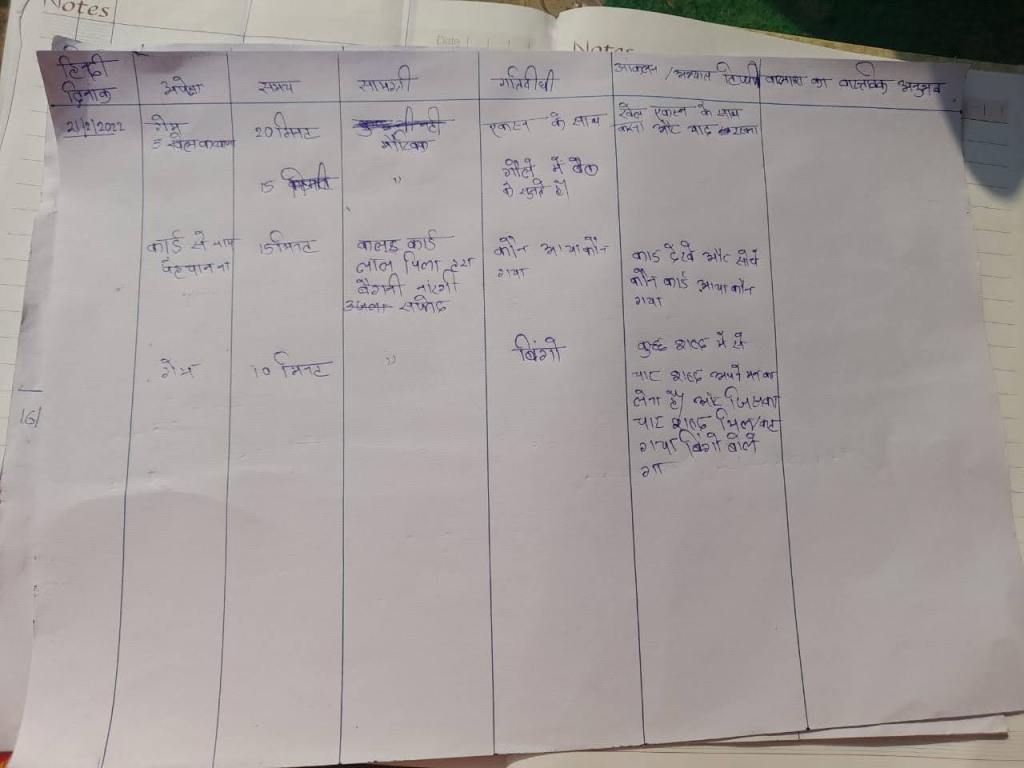 Notes
Date
Notes
हिन्दी
दिनांक
अपेक्षा
समय
सामग्री
गतिविधी
आकलन / अभ्यास टिप्पणी
क्लास का वास्तविक अनुभव
21/2/2022
गेम
20 मिनट
मौखिक
एक्शन के साथ
खेल एक्शन के साथ
करना और याद रखना
15
"
गोले में बैठ
15 मिनट
कार्ड से नाम
पहचानना
कालड कार्ड
लाल पिला हरा
बेगनी नारंगी
सफेद
कौन आया कौन
गया
कार्ड देखे और सोचे
कौन कार्ड आया कौन
गया
गेम
10 मिनट
"
बिंगो
कुछ शब्द में से
चार शब्द अपने मन का
लेना है। और जिसका
चार शब्द मिल/कट
गया बिंगो बोले
गा
16/